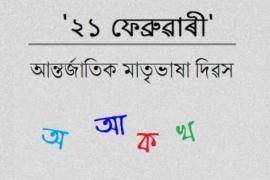 '২১ ফেব্ৰুৱাৰী'
আন্তৰ্জাতিক মাতৃভাষা দিৱস
অ আ ক খ